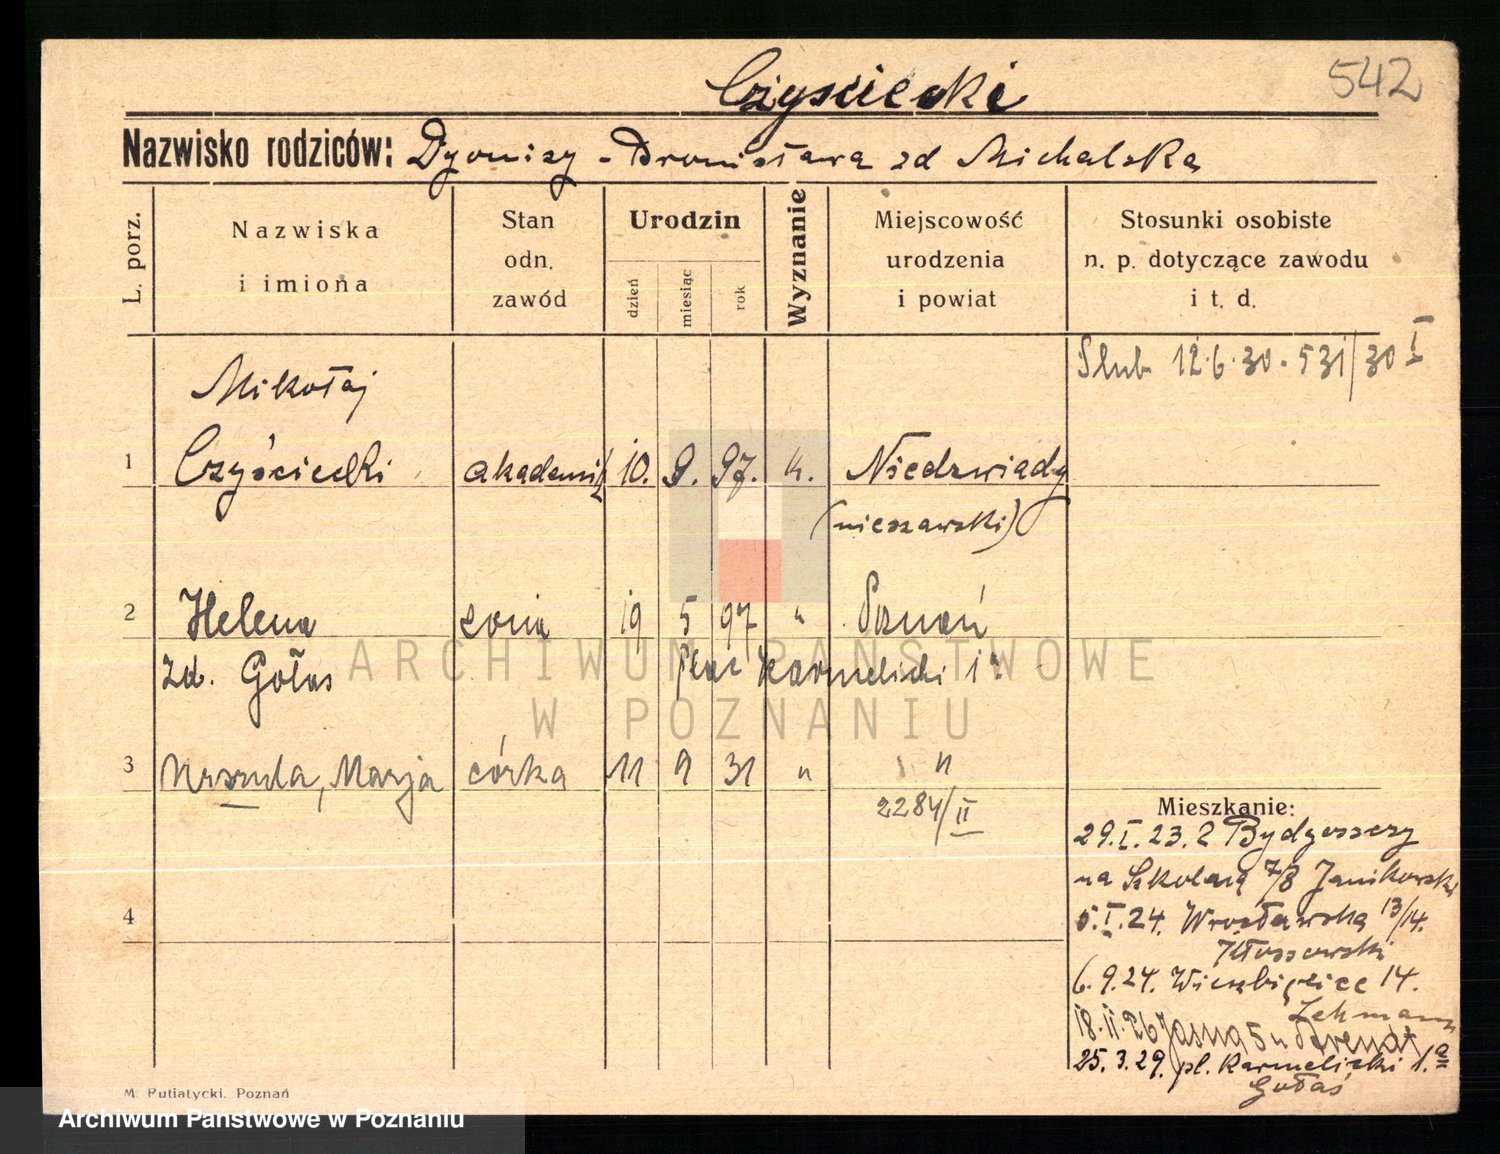 542
Czyściecki
Nazwisko rodziców: Dyonizy - Bronisława zd Michalska
L. porz.
Nazwiska i imiona
Stan odn. zawód
Urodzin
dzień
miesiąc
rok
Wyznanie
Miejscowość urodzenia i powiat
Stosunki osobiste n. p. dotyczące zawodu i t. d.
Ślub 12.6.30. 531/30 I
Mikołaj
1 Czyściecki akademik 10. 9. 97. k. Niedzwiady
(nieszawski)
2 Helena żona 19 5 97 " Poznań
zd. Gołas Plac Karmelicki 1a
3 Urszula, Marja córka 11 9 31 " "
2284/II
Mieszkanie:
29.I.23. z Bydgoszczy
na Szkolną 7/8 Janikowski
4
5.I.24. Wrocławska 13/14.
Kłossowski
6.9.24. Wierzbięcice 14.
Lehmann
18.II.26 Jasna 5 u Arendt
25.3.29. pl. Karmelicki 1.a
Gołaś
M. Putiatycki, Poznań
ARCHIWUM PAŃSTWOWE
W POZNANIU
Archiwum Państwowe w Poznaniu